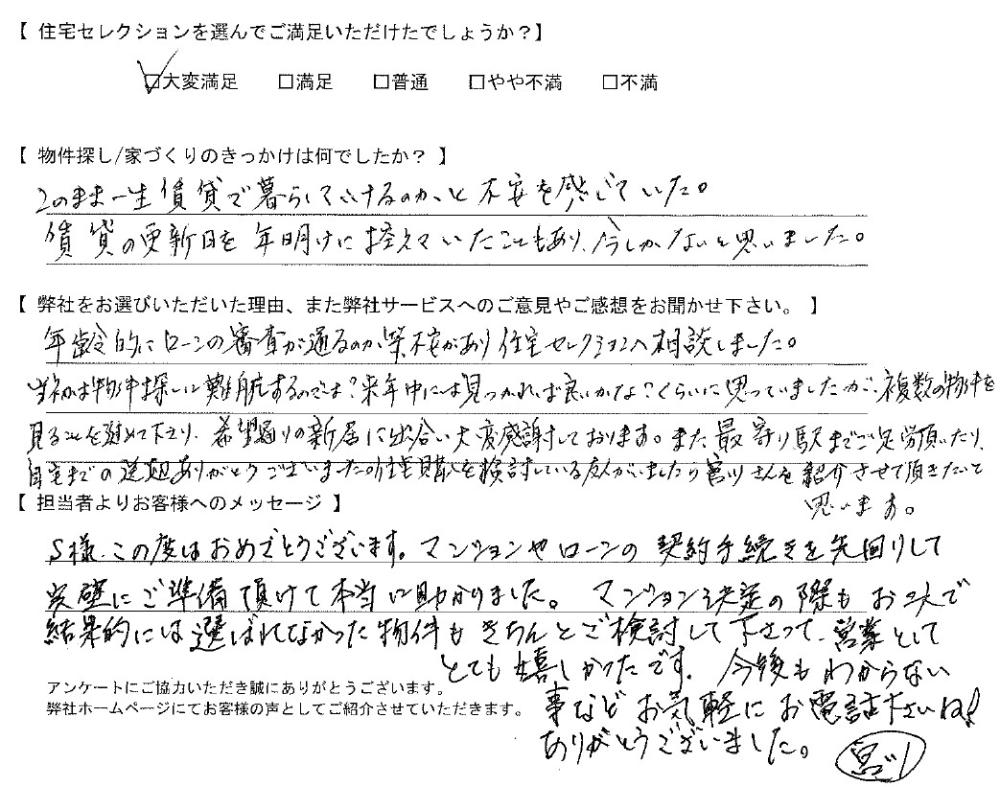 【 住宅セレクションを選んでご満足いただけたでしょうか？】
☑大変満足 □満足 □普通 □やや不満 □不満
【 物件探し/家づくりのきっかけは何でしたか？ 】
このまま一生賃貸で暮らしていけるのか、と不安を感じていた。
賃貸の更新日を年明けに控えていたこともあり、今しかないと思いました。
【 弊社をお選びいただいた理由、また弊社サービスへのご意見やご感想をお聞かせ下さい。 】
年齢的にローンの審査が通るのか等不安があり住宅セレクションへ相談しました。
当初は物件探しに難航するのでは？来年中には見つかれば良いかな？くらいに思っていましたが、複数の物件を
見ることを進めて下さり、希望通りの新居に出合い大変感謝しております。また最寄り駅までご足労頂いたり、
自宅までの送迎ありがとうございました。住宅購入を検討している友人がいましたら宮川さんを紹介させて頂きたいと
思います。
【 担当者よりお客様へのメッセージ 】
S様、この度はおめでとうございます。マンションやローンの契約手続きを先回りして
完璧にご準備頂けて本当に助かりました。マンション決定の際もお二人で
結果的には選ばれなかった物件もきちんとご検討して下さって、営業として
とても嬉しかったです。今後もわからない
事などお気軽にお電話下さいね！
ありがとうございました。
アンケートにご協力いただき誠にありがとうございます。
弊社ホームページにてお客様の声としてご紹介させていただきます。